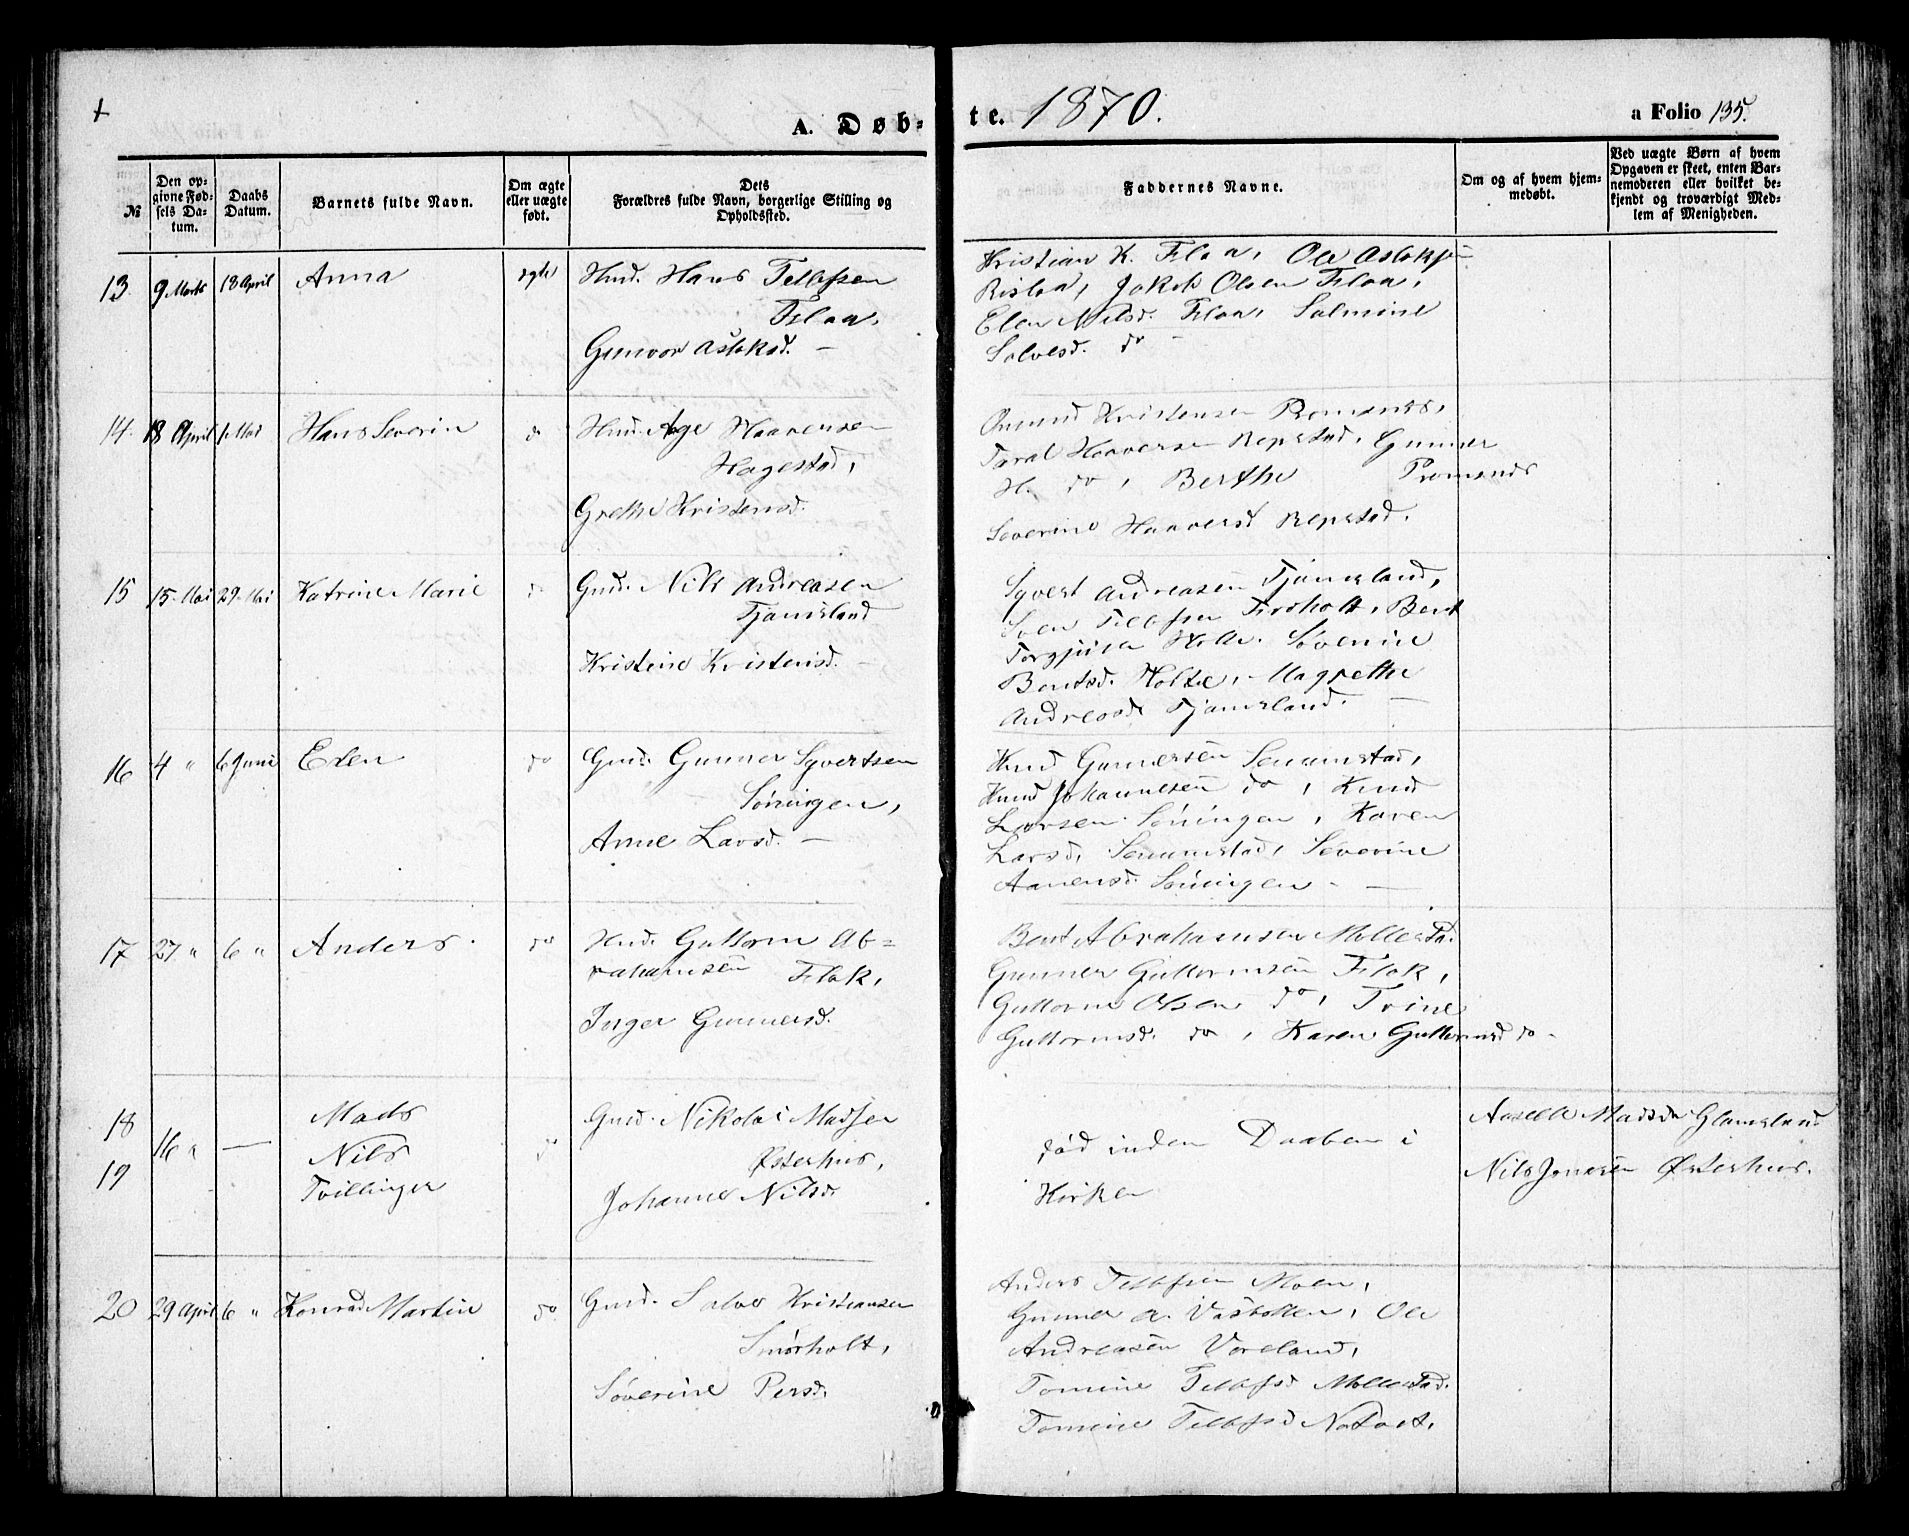 A. Døbte. 1870.
a Folio 135.
№
Den opgivne Fødsels Datum.
Daabs Datum.
Barnets fulde Navn.
Om ægte eller uægte født.
Dets Forældres fulde Navn, borgerlige Stilling og Opholdssted.
Faddernes Navne.
Om og af hvem hjemmedøbt.
Ved uægte Børn af hvem Opgaven er skeet, enten Barnemoderen eller hvilket bekjendt og troværdigt Medlem af Menigheden.
13 9 Marts 18 April Anna ægte Hmd. Hans Tellefsen
Flaa,
Gunvor Aslaksd. —
Kristian K. Flaa, Ole Aslaksen
Rislaa, Jakob Olsen Flaa,
Elen Nilsd. Flaa, Salmine
Salvesd. do —
14. 18 April 1 Mai Hans Severin do Hmd. Age Haaversen
Hagestad,
Grethe Kristensd.
Omund Kristensen Promenes,
Taral Haaversen Repstad, Gunner
H. do, Berthe Promenes
Severine Haaversd Repstad.
15 15 Mai 29 Mai Katrine Marie do Gmd. Nils Andreasen
Tjamsland
Kristine Kristensd. —
Syvert Andreasen Tjamsland,
Sven Tellefsen Froholt, Bent
Torgjusen Holte. Søverine
Bentsd. Holte, Magrethe
Andreasd Tjamsland. —
16 4 " 6 Juni Elen do Gmd. Gunner Syvertsen
Søningen,
Anne Larsd. —
Knud Gunnersen Senumstad,
Knud Johannesen do, Knud
Larsen Søningen, Karen
Larsd, Senumstad, Severine
Aanensd. Søningen. —
17 27 " 6 " Anders do Hmd. Guttorm Ab=
rahamsen Flak,
Inger Gunnersd.
Bent Abrahamsen Mollestad.
Gunner Guttormsen Flak,
Guttorm Olsen do, Trine
Guttormsd. do, Karen Guttormsd do.
18 16 " — Mads do Gmd. Nikolai Madsen
19 Nils Østerhus,
Tvillinger Johanne Nilsd.
død inden Daaben i
Kirken
Aaselle Madsd Glamsland
Nils Jensen Østerhus.
20 29 April 6 " Konrad Martin do Gmd. Salve Kristiansen
Smørholt,
Søverine Persd.
Anders Tellefsen Moen,
Gunner A. Vasbotten, Ole
Andreasen Voreland,
Tomine Tellefsd Mollestad.
Tomine Tellefsd Natvet.